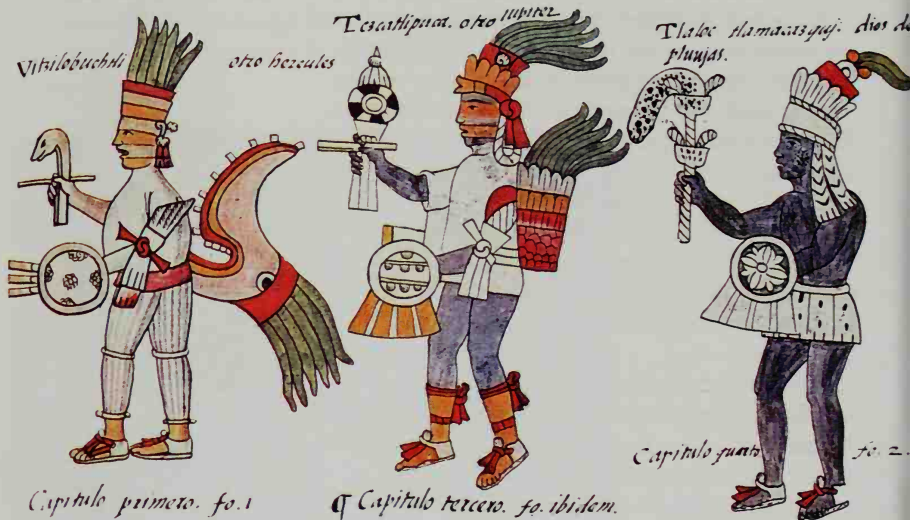 Vitzilobuchtli otro hercules
Tezcatlipuca. otro iupiter
Tlaloc tlamacazquj. dios de
pluujas.
Capitulo primero. fo. 1
¶ Capitulo tercero. fo. ibidem.
Capitulo quarto fo. 2.